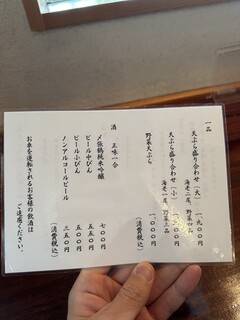 一品
天ぷら盛り合わせ(大) 一、九〇〇円
海老二尾、野菜四品
天ぷら盛り合わせ(小)
海老一尾、野菜三品
野菜天ぷら 一、〇〇〇円
(消費税込)
酒 正味一合
〆張鶴純米吟醸 七〇〇円
ビール中びん 五五〇円
ビール小びん 五〇〇円
ノンアルコールビール 三五〇円
(消費税込)
お車を運転されるお客様の飲酒は
ご遠慮ください。